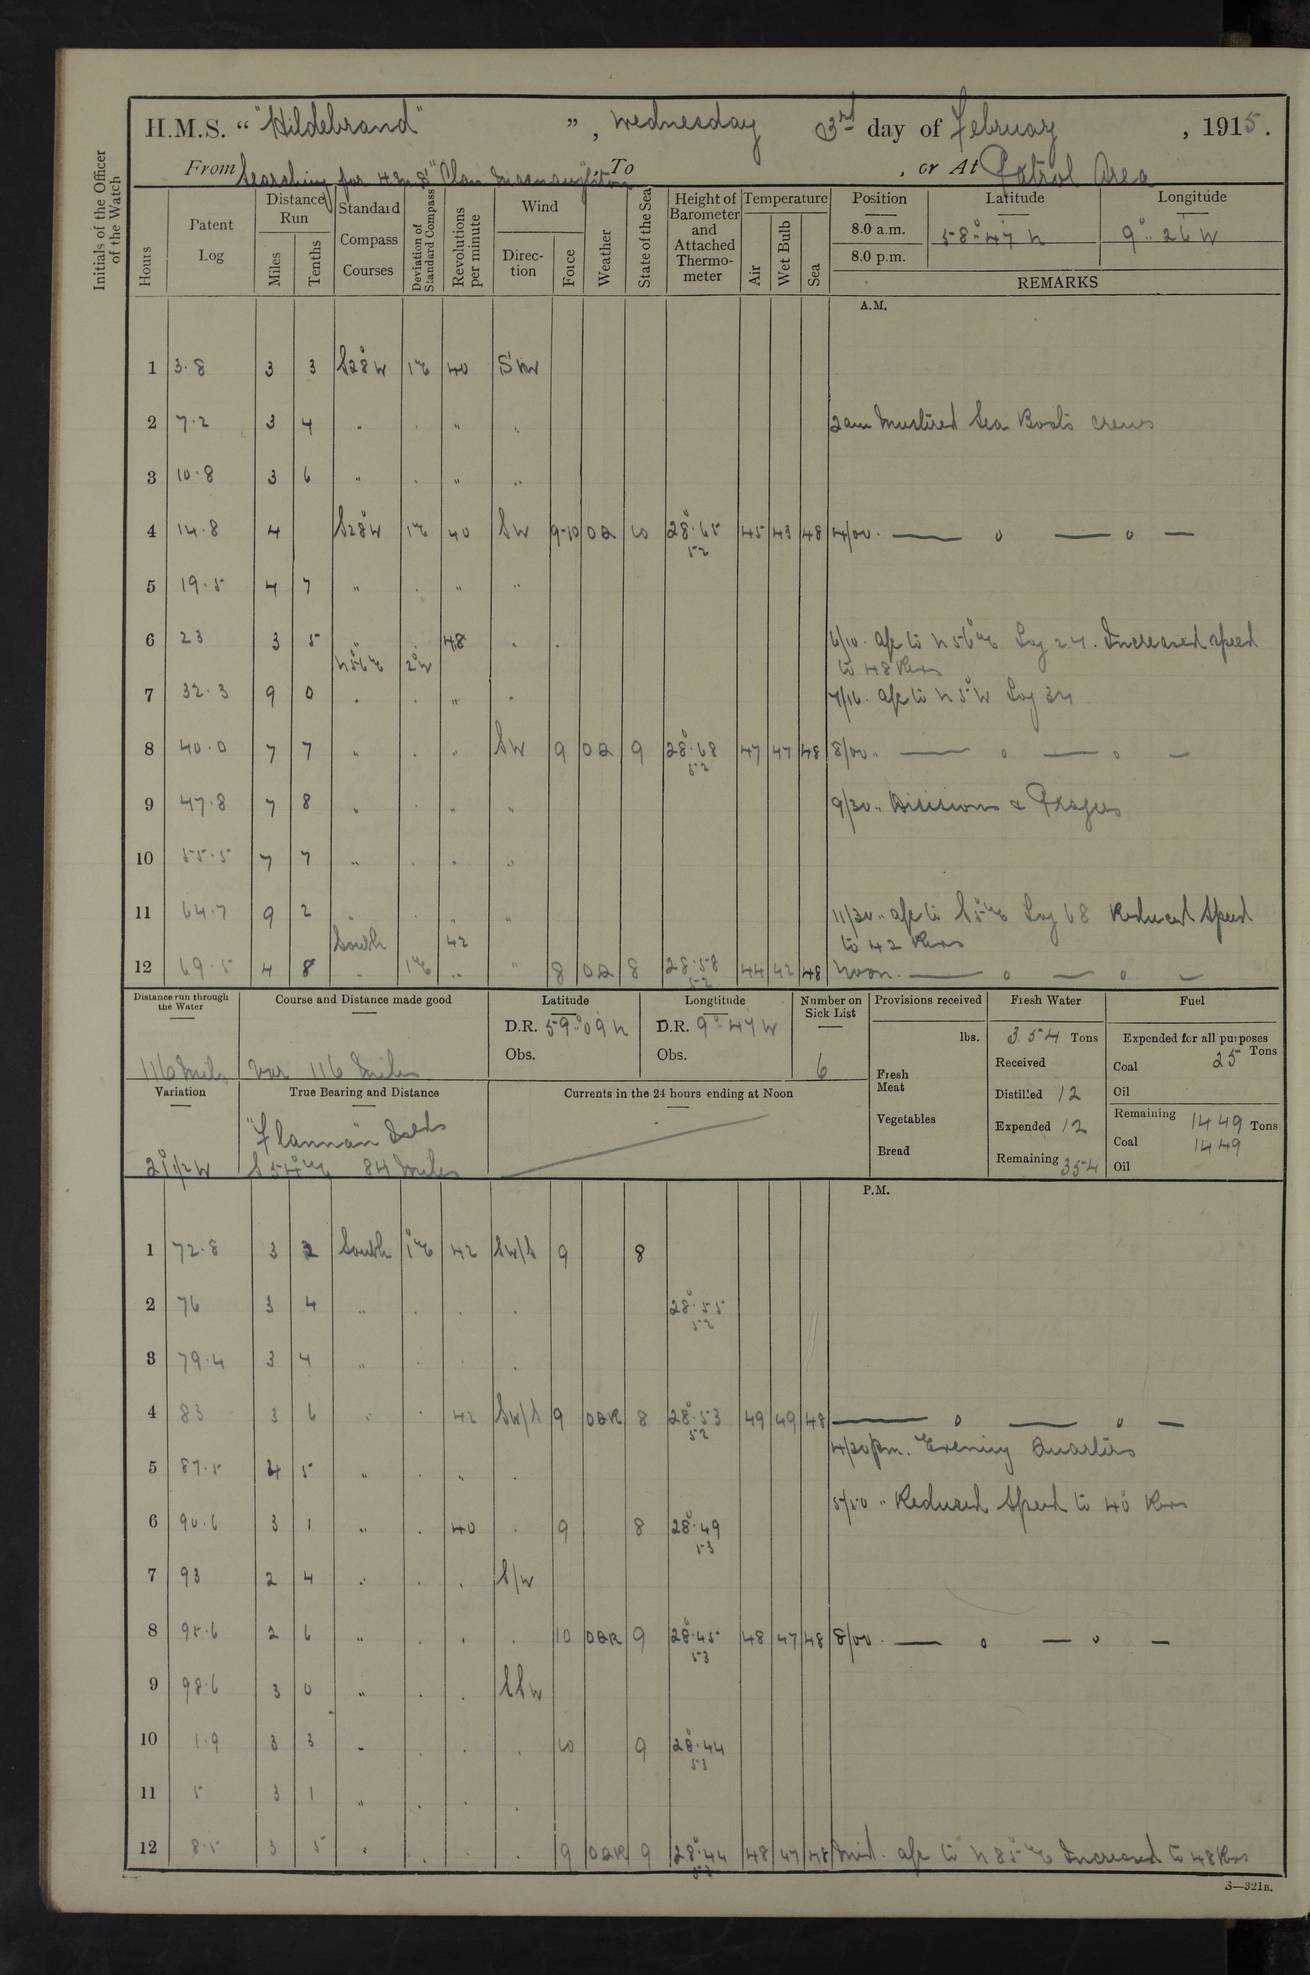 H.M.S. “ "Hildebrand" ”, Wednesday 03rd day of February, 1915.
From Searching for H.M.S "Clan Macnaughton", To , or At Patrol Area
Initials of the Officer of the Watch
Hours Patent Log Distance Run Miles Tenths Standard Compass Courses Deviation of Standard Compass Revolutions per minute Wind Direction Force Weather State of the Sea Height of Barometer and Attached Thermometer Temperature Air Wet Bulb Sea Position Latitude Longitude
8.0 a.m. 58°·47 N 9°·· 26 W
8.0 p.m.
REMARKS
A.M.
1 3·8 3 3 S28°W 1°E 40 SW
2 7·2 3 4 " " " " 2am Mustered Sea Boats crews
3 10·8 3 6 " " " "
4 14·8 4 S28°W 1°E 40 SW 9-10 OQ 10 28·65 52 45 43 48 4/00. — o — o —
5 19·5 4 7 " " " "
6 23 3 5 " " 48 " 6/10. a/c to N56°E Log 24. Increased speed
N56°E 2°W to 48 Revs
7 32·3 9 0 " " " " 7/16. a/c to N5°W Log 34
8 40·0 7 7 " " " SW 9 OQ 9 28·68 52 47 47 48 8/00 " — o — o —
9 47·8 7 8 " " " " 9/30 " Divisions & Prayers
10 55·5 7 7 " " " "
11 64·7 9 2 " " " 11/30 " a/c to S5°E Log 68 Reduced Speed
South 42 to 42 Revs
12 69·5 4 8 " 1°E " " 8 OQ 8 28·58 52 44 42 48 Noon. — o — o —
Distance run through the Water Course and Distance made good Latitude Longtitude Number on Sick List Provisions received Fresh Water Fuel
D.R. 59°·09 N D.R. 9°·47 W lbs. 354 Tons Expended for all purposes
Obs. Obs. Received Coal 25 Tons
116 Miles Var 116 Miles 6 Fresh Meat Distilled 12 Oil
Variation True Bearing and Distance Currents in the 24 hours ending at Noon
Vegetables Expended 12 Remaining 1449 Tons
"Flannan" Islds Coal 1449
21°1/2 W S54°E 84 Miles Bread Remaining 354 Oil
P.M.
1 72·8 3 2 South 1°E 42 SW/S 9 8
2 76 3 4 " " " " 28·55 52
3 79·4 3 4 " " " "
4 83 3 6 " " 42 SW/S 9 OQR 8 28·53 52 49 49 48 — o — o —
4/30 pm. Evening Quarters
5 87·5 4 5 " " " "
5/50 " Reduced Speed to 40 Revs
6 90·6 3 1 " " 40 " 9 8 28·49 53
7 93 2 4 " " " S/W
8 95·6 2 6 " " " " 10 OQR 9 28·45 53 48 47 48 8/00. — o — o —
9 98·6 3 0 " " " SSW
10 1·9 3 3 " " " " 10 9 28·44 53
11 5 3 1 " " " "
12 8·5 3 5 " " " " 9 OQR 9 28·44 53 48 47 48 Mid. a/c to N85°E Increased to 48 Revs
S—321B.